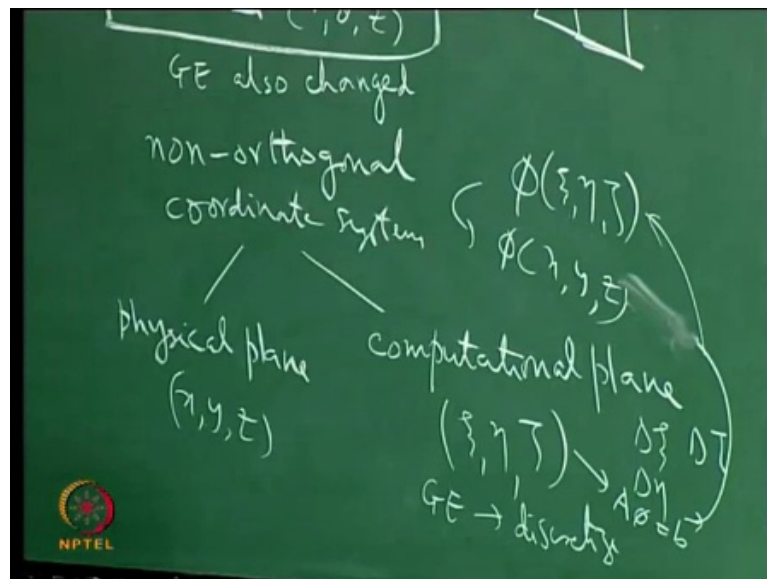 (r, θ, z)
GE also changed
non-orthogonal
coordinate system
φ(ξ, η, ζ)
φ(x, y, z)
physical plane
(x, y, z)
computational plane
(ξ, η, ζ)
Δξ Δζ
Δη
Aφ = b
GE → discretize
NPTEL